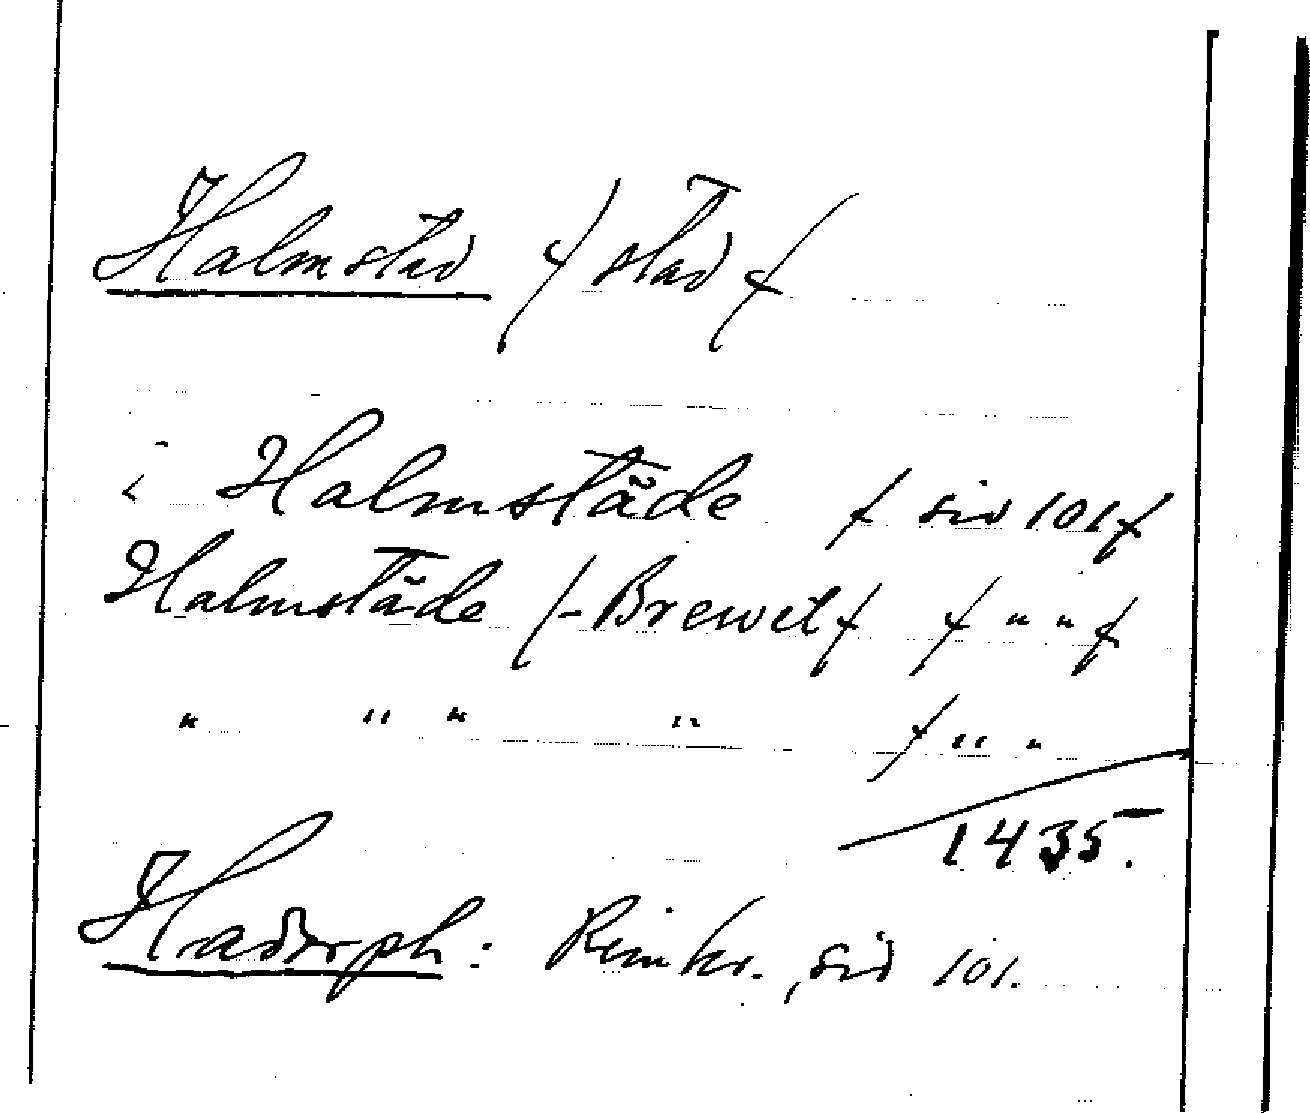 Halmstad /stad/
i Halmstäde / sid 101/
Halmstäde /-Brewet/ / " " /
" " " " / " "
1435.
Hadorph: Rimkr., sid 101.